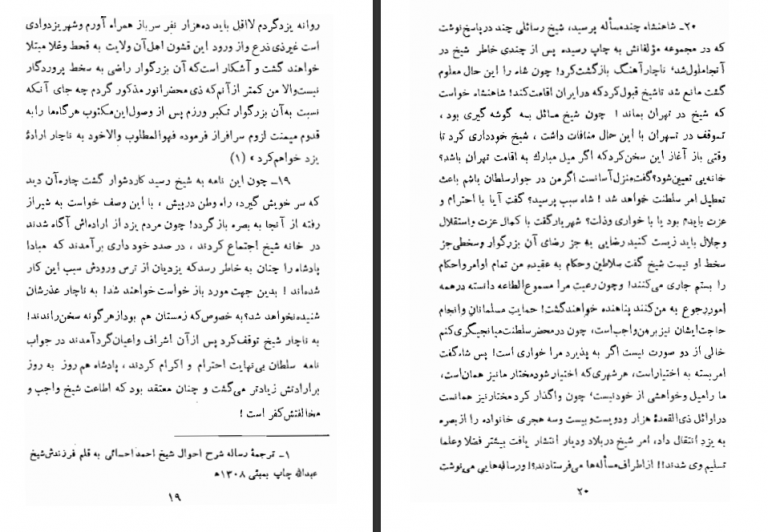 روانه یزدگردم لااقل باید ده‌هزار نفر سرباز همراه آورم وشهر یزدوادی
است غیرذی ذرع واز ورود این قشون اهل آن ولایت به قحط وغلا مبتلا
خواهند گشت و آشکار است‌که آن بزرگوار راضی به سخط پروردگار
نیست‌والا من کمتر از آنم‌که ذی محضر انور مذکور گردم چه جای آنکه
نسبت به‌آن بزرگوار تکبر ورزم پس از وصول این‌مکتوب هرگاه‌ما را به
قدوم میمنت لزوم سرافراز فرموده فهوالمطلوب والاخود به ناچار ارادۀ
یزد خواهم‌کرد » (۱)
۱۹ـ چون این نامه به شیخ رسید کاردشوار گشت چاره‌آن دید
که سر خویش گیرد، راه وطن درپیش ، با این وصف خواست به شیراز
رفته از آنجا به بصره بازگردد! چون مردم یزد از اراده‌اش آگاه شدند
در خانه شیخ اجتماع کردند ، در صدد خود داری برآمدند که مبادا
پادشاه را چنان به خاطر رسدکه یزدیان از ترس ورودش سبب این کار
شده‌اند ! بدین جهت مورد باز خواست خواهند شد! به ناچار عذرشان
شنیده‌نخواهد شد؟به خصوص‌که زمستان هم بوداز‌هرگونه سخن راندند!
به ناچار شیخ توقف‌کرد پس از آن اشراف واعیان‌گردآمدند در جواب
نامه سلطان بی‌نهایت احترام و اکرام کردند ، پادشاه هم روز به روز
برارادتش زیادتر می‌گشت و چنان معتقد بود که اطاعت شیخ واجب و
مخالفتش کفر است !
۱ـ ترجمۀ رساله شرح احوال شیخ احمد احسائی به قلم فرزندش‌شیخ
عبدالله چاپ بمبئی ۱۳۰۸ﻫ
۱۹
۲۰ـ شاهنشاه چندمسأله پرسید، شیخ رسائلی چند درپاسخ‌نوشت
که در مجموعه مؤلفاتش به چاپ رسیده پس از چندی خاطر شیخ در
آنجاملول‌شد، ناچار آهنگ بازگشت‌کرد! چون شاه را این حال معلوم
گشت مانع شد تاشیخ قبول‌کردکه درایران اقامت‌کند! شاهنشاه خواست
که شیخ در تهران بماند ! چون شیخ مسائل به گوشه گیری بود ،
توقف در تهران با این حال منافات داشت ، شیخ خودداری کرد تا
وقتی باز آغاز این سخن‌کردکه اگر میل مبارك به اقامت تهران باشد؟
خانه‌یی تعیین‌شود؟گفت‌منزل آسانست اگرمن در جوار سلطان باشم باعث
تعطیل امر سلطنت خواهد شد ! شاه سبب پرسید؟ گفت آیا با احترام و
عزت بایدم بود یا با خواری وذلت؟ شهریار گفت با کمال عزت واستقلال
وجلال باید زیست کنید رضایی به جز رضای آن بزرگوار وسخطی‌جز
سخط او نیست شیخ گفت سلاطین وحکام به عقیده من تمام اوامرواحکام
را بستم جاری می‌کنند! وچون رعیت مرا مسموع‌الطاعه دانسته درهمه
اموررجوع به من‌کنند پناهنده خواهندگشت! حمایت مسلمانان وانجام
حاجت‌ایشان نیزبرمن‌واجب‌است، چون درمحضرسلطنت‌میانجیگری‌کنم
خالی از دو صورت نیست اگر به پذیرد مرا خواری است! پس شاه‌گفت
امربسته به اختیاراست، هرشهری‌که اختیار شودمختارمانیز همان‌است،
ما رامیل وخواهشی از خودنیست، چون واگذار کردمختارنیز همانست
دراوائل ذی‌القعدۀ هزار ودویست‌وبیست وسه هجری خانواده را ازبصره
به یزد انتقال داد، امر شیخ دربلاد ودیار انتشار یافت بیشتر فضلا وعلما
تسلیم وی شدند!! ازاطراف مسأله‌ها می‌فرستادند؟! ورساله‌هایی می‌نوشت
۲۰